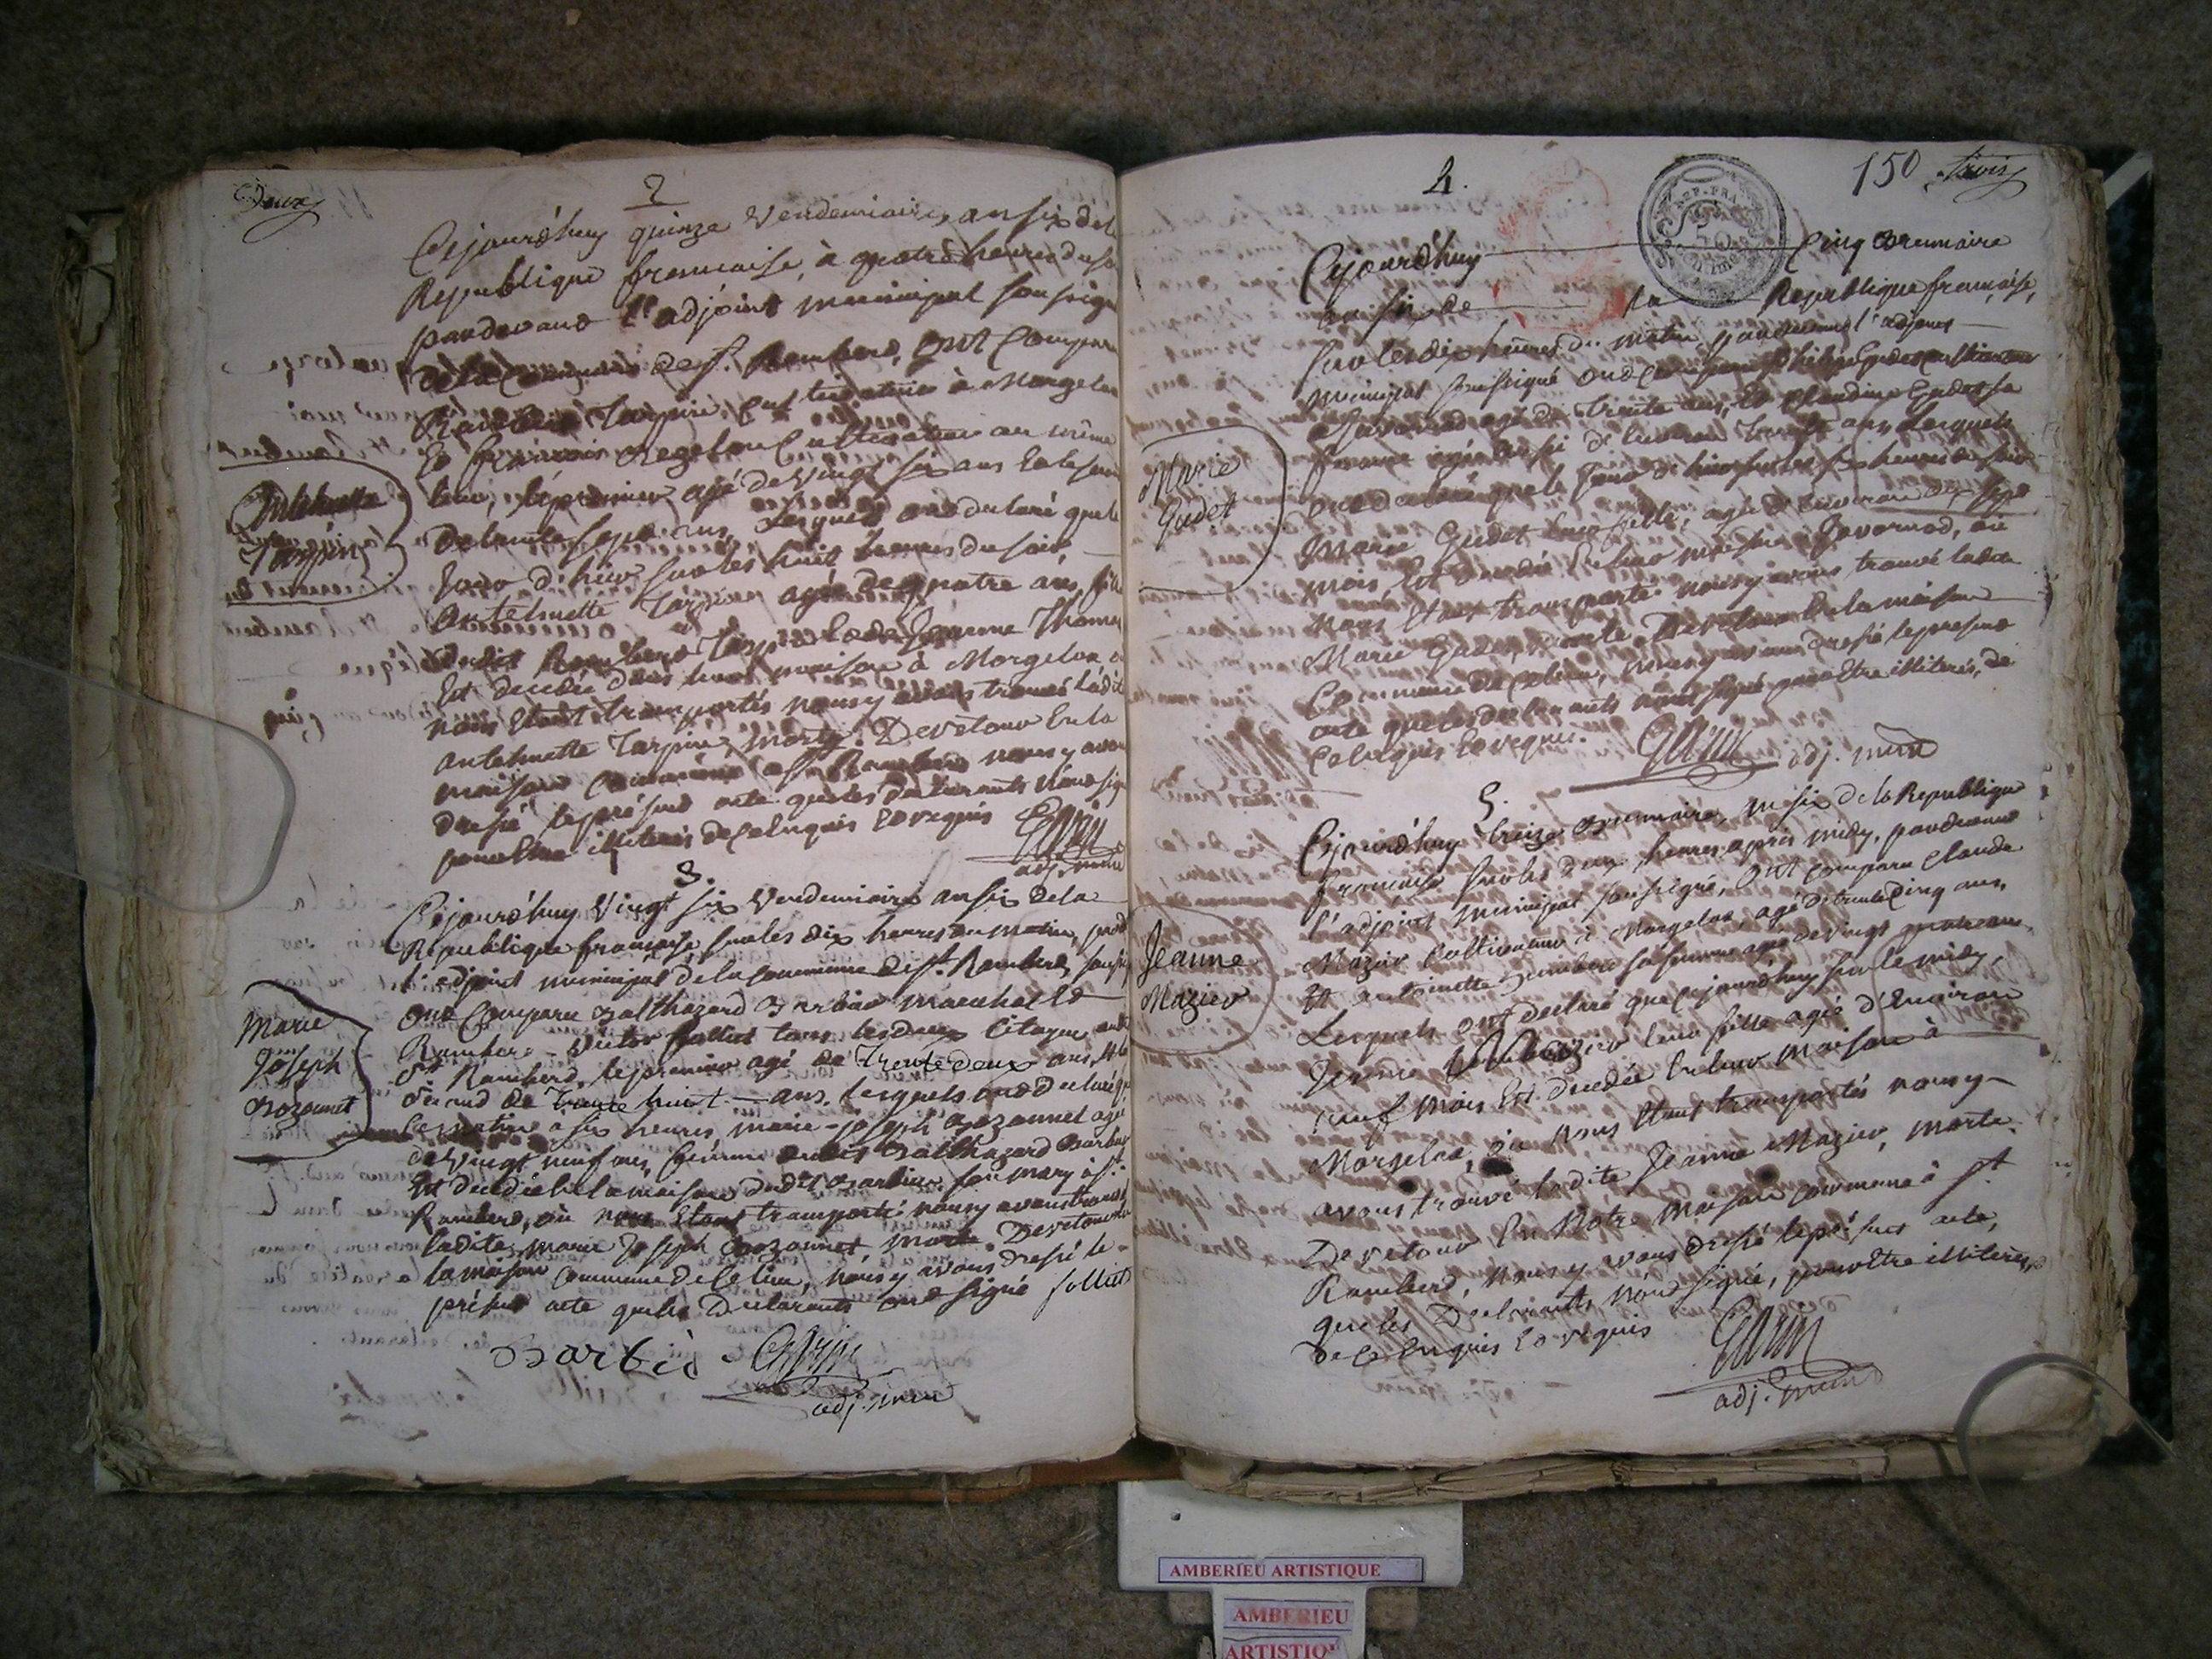 Deux
2
Cejourd'huy quinze Vendemiaire, an six de l
Republique francaise, à quatre heures du so
pardevant l'adjoint municipal soussigné
de la Commune de St. Rambert, ont Compar
Rambert Tarpin, Cultivateur à Morgelas
Et francois Cultivateur au même
lieu, le premier agé de Vingt six ans Et le secon
de trente sept ans, Lesquels ont declaré que le
Jour d'hier sur les huit heures du soir,
antelmette Tarpin agée de quatre ans, fille
dudit Rambert Tarpin Et de Jeanne Thomas
Est decedée dans leur maison à Morgelas, o
nous Etant transportés nous y avons trouvé ladite
antelmette Tarpin, morte. De retour En la
maison Commune de St Rambert nous y avons
dressé le présent acte que les declarants n'ont sig
pour Etre illiterés de ce Enquis Et requis
adj. muni
Antelmette
Tarpin
3.
Cejourd'huy Vingt six Vendemiaire an six de la
Republique francaise, sur les dix heures du matin, pard
l'adjoint municipal de la commune de St. Rambert, soussig
ont Comparu Balthazard Barbier marechal à
Rambert - Victor folliet tous les deux Citoyens
St Rambert, le premier agé de trente deux ans, Et le
second de trente huit — ans, lesquels ont declaré q
ce matin a six heures marie-joseph Bozonnet agée
de vingt neuf ans, femme dudit Balthazard Barbier
Est decedée En la maison dudit Barbier son mary à St.
Rambert, où nous Etant transporté nous y avons trouvé
ladite marie Joseph Bozonnet morte. De retour En
la maison commune de Ce lieu, nous y avons dressé le
présent acte que les Declarants ont signé folliet
Barbié
adj. muni
Marie
Joseph
Bozonnet
4.
150 trois
REP. FRA
Cejourd'huy — Cinq Brumaire
an six de — la — Republique francaise,
sur les dix heures du matin, pardevant l'adjoint
municipal soussigné ont Comparu Gudet cultivateur
à Javornod agé de trente ans, Et Claudine Gudet sa
femme agée aussi d'Environ trente ans Lesquels
ont declaré que le Jour d'hier sur les six heures du soir
Marie Gudet leur fille, agée d'Environ dix sept
mois Est decedée En leur maison à Javornod, où
nous Etant transporté nous y avons trouvé ladite
Marie Gudet, morte. De retour En la maison
Commune de Ce lieu, nous y avons dressé le present
acte que les declarants n'ont signé pour Etre illiterés, de
Ce Enquis Et requis.
adj. muni
Marie
Gudet
5.
Cejourd'huy treize Brumaire, an six de la Republique
francaise sur les deux heures après midy, pardevant
l'adjoint municipal soussigné, ont comparu Claude
Mazier Cultivateur à Morgelas, agé de trente Cinq ans,
Et antoinette sa femme agée de vingt quatre ans,
Lesquels ont declaré que Cejourd'huy sur le midy,
Jeanne Mazier leur fille agée d'Environ
neuf mois Est decedée En leur maison à
Morgelas, où nous Etant transportés nous y
avons trouvé ladite Jeanne Mazier, morte.
De retour En Notre maison commune à St
Rambert, nous y avons dressé le présent acte,
que les Declarants n'ont signé, pour Etre illiterés,
de ce Enquis Et requis
adj. muni
Jeanne
Mazier
AMBERIEU ARTISTIQUE
AMBERIEU
ARTISTIQU